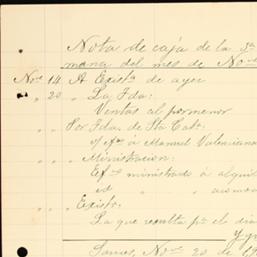 Nota de caja de la 3ª
mana del mes de Nov
Nov.e 14 A Exist.a de ayer
" " 20 " La Fda:
Ventas al pormenor
" " " Por Fda. de Sta Cat.a
s/ fra á Manuel Valenciana
" " " Ministracion:
Ef.vo ministrado á alquil
id " " acomo
" " " Exist.a:
La que resulta p.a el dia
Y qu
Lomas, Nov.e 20 de 19